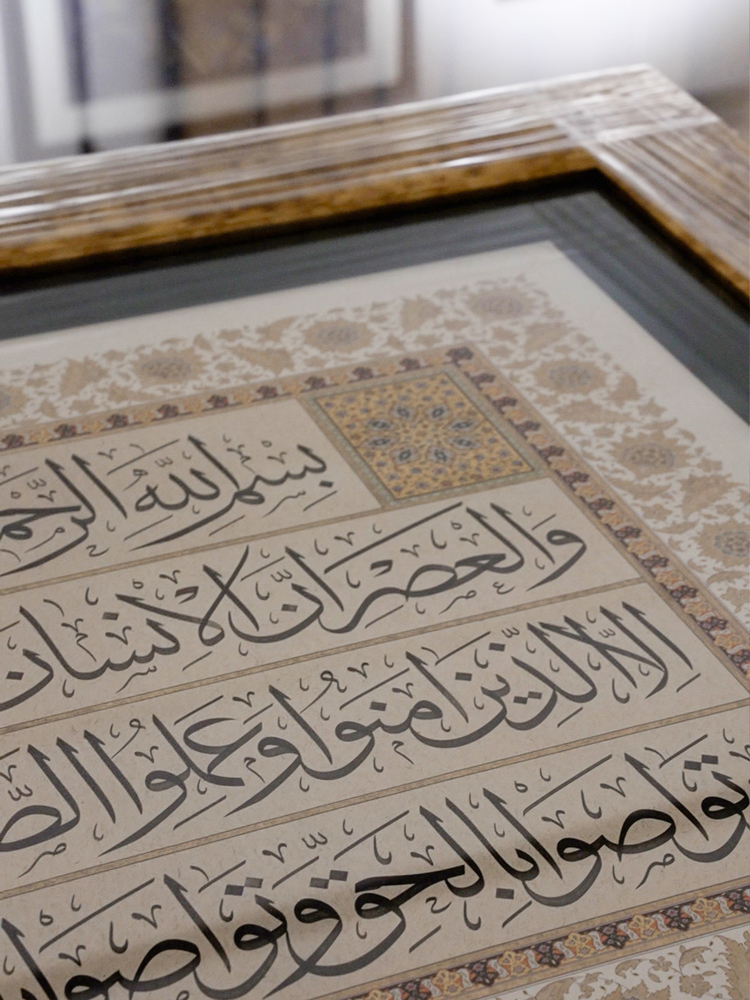 بِسْمِ اللّٰهِ الرَّحْم
وَالْعَصْرِ اِنَّ الْاِنْسَانَ
اِلَّا الَّذِينَ اٰمَنُوا وَعَمِلُوا الصّ
تَوَاصَوْا بِالْحَقِّ وَتَوَاصَوْا